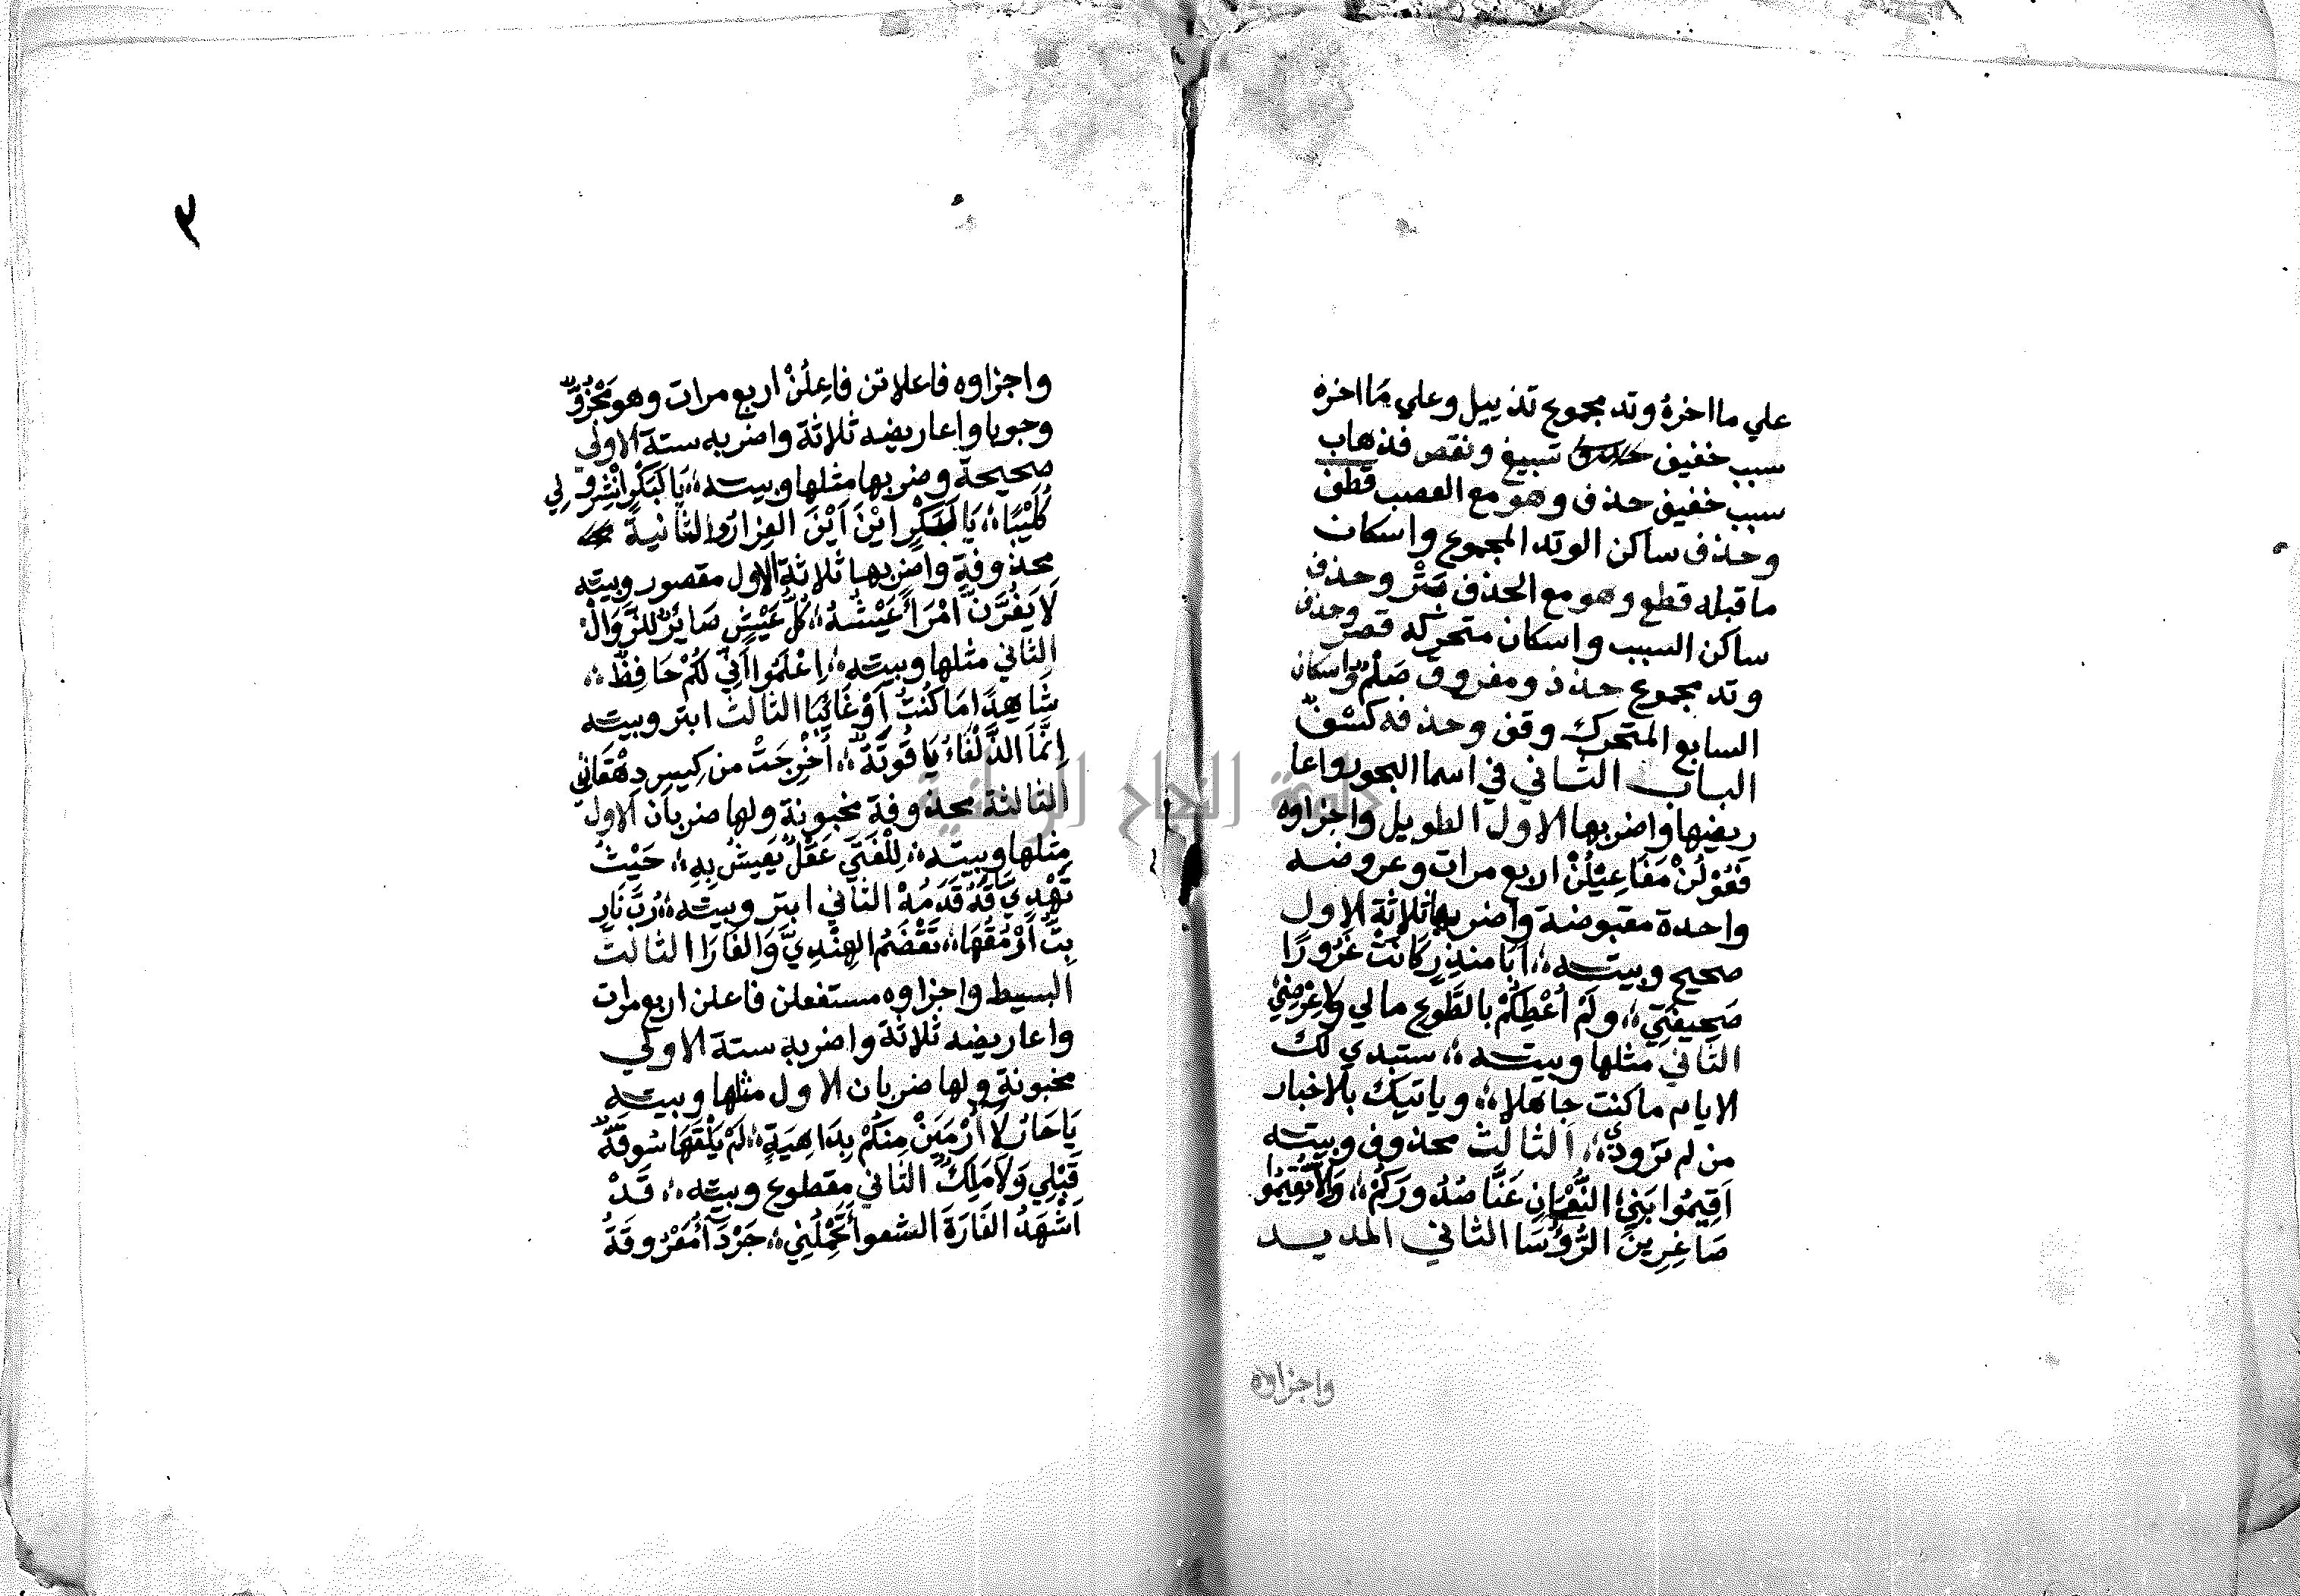 علي ما اخرهُ وتد مجموع تذييل وعلي مَا اخره
سبب خفيف تسبيغ ونقص فذهاب
سبب خفيف حذف وهو مع العصب قطف
وحذف ساكن الوتد المجموع واسكان
ما قبله قطع وهو مع الحذف بَتْر وحذف
ساكن السبب واسكان متحركه قصر وحذف
وتد مجموع حذذ ومفروق صَلْمٌ واسكان
السابع المتحرك وقف وحذفه كشفٌ
الباب الثاني في اسما البحور واعا
ريضها واضربها الاول الطويل واجزاوه
فَعُوْلُنْ مَفَاعِيْلُنْ اربع مرات وعروضه
واحدة مقبوضة واضربها ثلاثة الاول
صحيح وبيته؛ اَبَا منذِرٍ كَانَتْ غُرُورًا
صَحِيفَتِي؛ ولَمْ اُعْطِكُمْ بالطَّوعِ مالي ولاعِرْضِيْ
الثاني مثلها وبيته؛ ستبدي لك
الايام ما كنت جاهلا؛ وياتيك بالاخبار
من لم تزودي؛ الثالث محذوف وبيته
اَقِيمُوا بَنِيْ النُّعْمَانِ عَنَّا صُدُورَكُمْ؛ وَاِلَّا تُقِيمُوا
صَاغِرِينَ الرُّؤُسَا الثاني المديد
واجزاوه
٣
واجزاوه فاعلاتن فاعِلُنْ اربع مرات وهو مَجْزُوٌّ
وجوبا واعاريضه ثلاثة واضربه ستة الاولي
صحيحة وضربها مثلها وبيته؛ يَا لَبَكْرٍ انْشِرُوْ لِي
كُلَيْبًا؛ يَا لَبَكْرٍ اَيْنَ اَيْنَ الفِرَارُ والثانية
محذوفة واضربها ثلاثة الاول مقصور وبيته
لَا يَغُرَّنَّ امْرَأً عَيْشُهُ؛ كُلُّ عَيْشٍ صَايْرٌ للزَّوَالْ
الثاني مثلها وبيته؛ اِعْلَمُوا اَنِّي لَكُمْ حَافِظٌ؛
شَاهِدًا مَا كُنْتُ اَوْ غَائِبَا الثالث ابتر وبيته
اِنَّمَا الذَّلْفَاءُ يَاقُوتَةٌ؛ اُخْرِجَتْ من كِيسِ دِهْقَانِي
الثالثة محذوفة مخبونة ولها ضربان الاول
مثلها وبيته؛ لِلْفَتَي عَقْلٌ يَعِيشُ بِهِ؛ حَيْثُ
تَهْدِي سَاقَهُ قَدَمُهْ الثاني ابتر وبيته؛ رُبَّ نَارٍ
بِتُّ اَرْمُقُهَا؛ تَقْضَمُ الهِنْدِيَّ وَالغَارَا الثالث
البسيط واجزاوه مستفعلن فاعلن اربع مرات
واعاريضه ثلاثة واضربه ستة الاولي
مخبونة ولها ضربان الاول مثلها وبيته
يَا حَارُ لَا اُرْمَيَنْ مِنْكُمْ بِدَاهِيَةٍ؛ لَمْ يَلْقَهَا سُوقَةٌ
قَبْلِي وَلَا مَلِكٌ الثاني مقطوع وبيته؛ قَدْ
اَشْهَدُ الغَارَةَ الشعوا تَحْمِلُنِي؛ جَرْدَآ مُعَرْوقَةُ
جامعة النجاح الوطنية